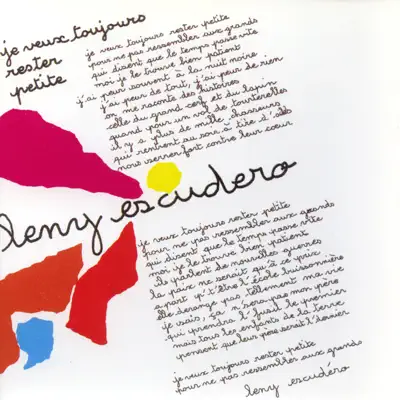 je veux toujours
rester
petite
je veux toujours rester petite
pour ne pas ressembler aux grands
qui disent que le temps passe vite
moi je le trouve bien patient
j'ai peur souvent à la nuit noire
j'ai peur de tout, j'ai peur de rien
on me raconte des histoires
celle du grand cerf et du lapin
quand par un vol de tourterelles
il y a plus de mille chasseurs
qui rentrent au soir à tire d'aile
nous serrer fort contre leur coeur
leny escudero
je veux toujours rester petite
pour ne pas ressembler aux grands
qui disent que le temps passe vite
moi je le trouve bien patient
ils parlent de nouvelles guerres
la paix ne serait qu'à ce prix
a part qu't'être l'école buissonnière
elle dérange pas tellement ma vie
je sais, ça n'sera pas mon père
qui prendra l'fusil le premier
mais tous les enfants de la terre
pensent que leur père serait l'dernier
je veux toujours rester petite
pour ne pas ressembler aux grands
leny escudéro